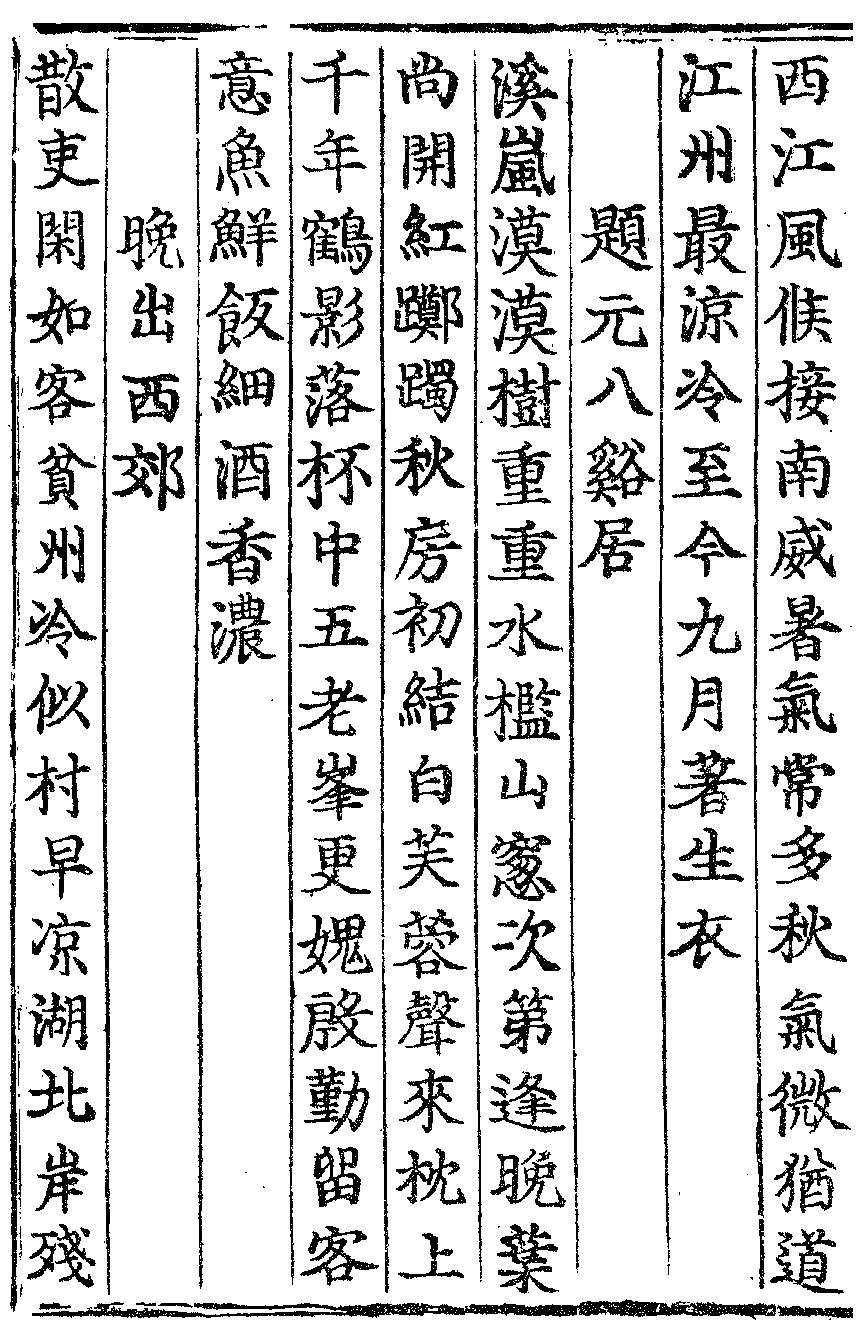 西江風候接南威暑氣常多秋氣微猶道
江州最涼冷至今九月著生衣
題元八谿居
溪嵐漠漠樹重重水檻山窻次第逢晚葉
尚開紅躑躅秋房初結白芙蓉聲來枕上
千年鶴影落杯中五老峯更媿殷勤留客
意魚鮮飯細酒香濃
晚出西郊
散吏閑如客貧州冷似村早凉湖北岸殘